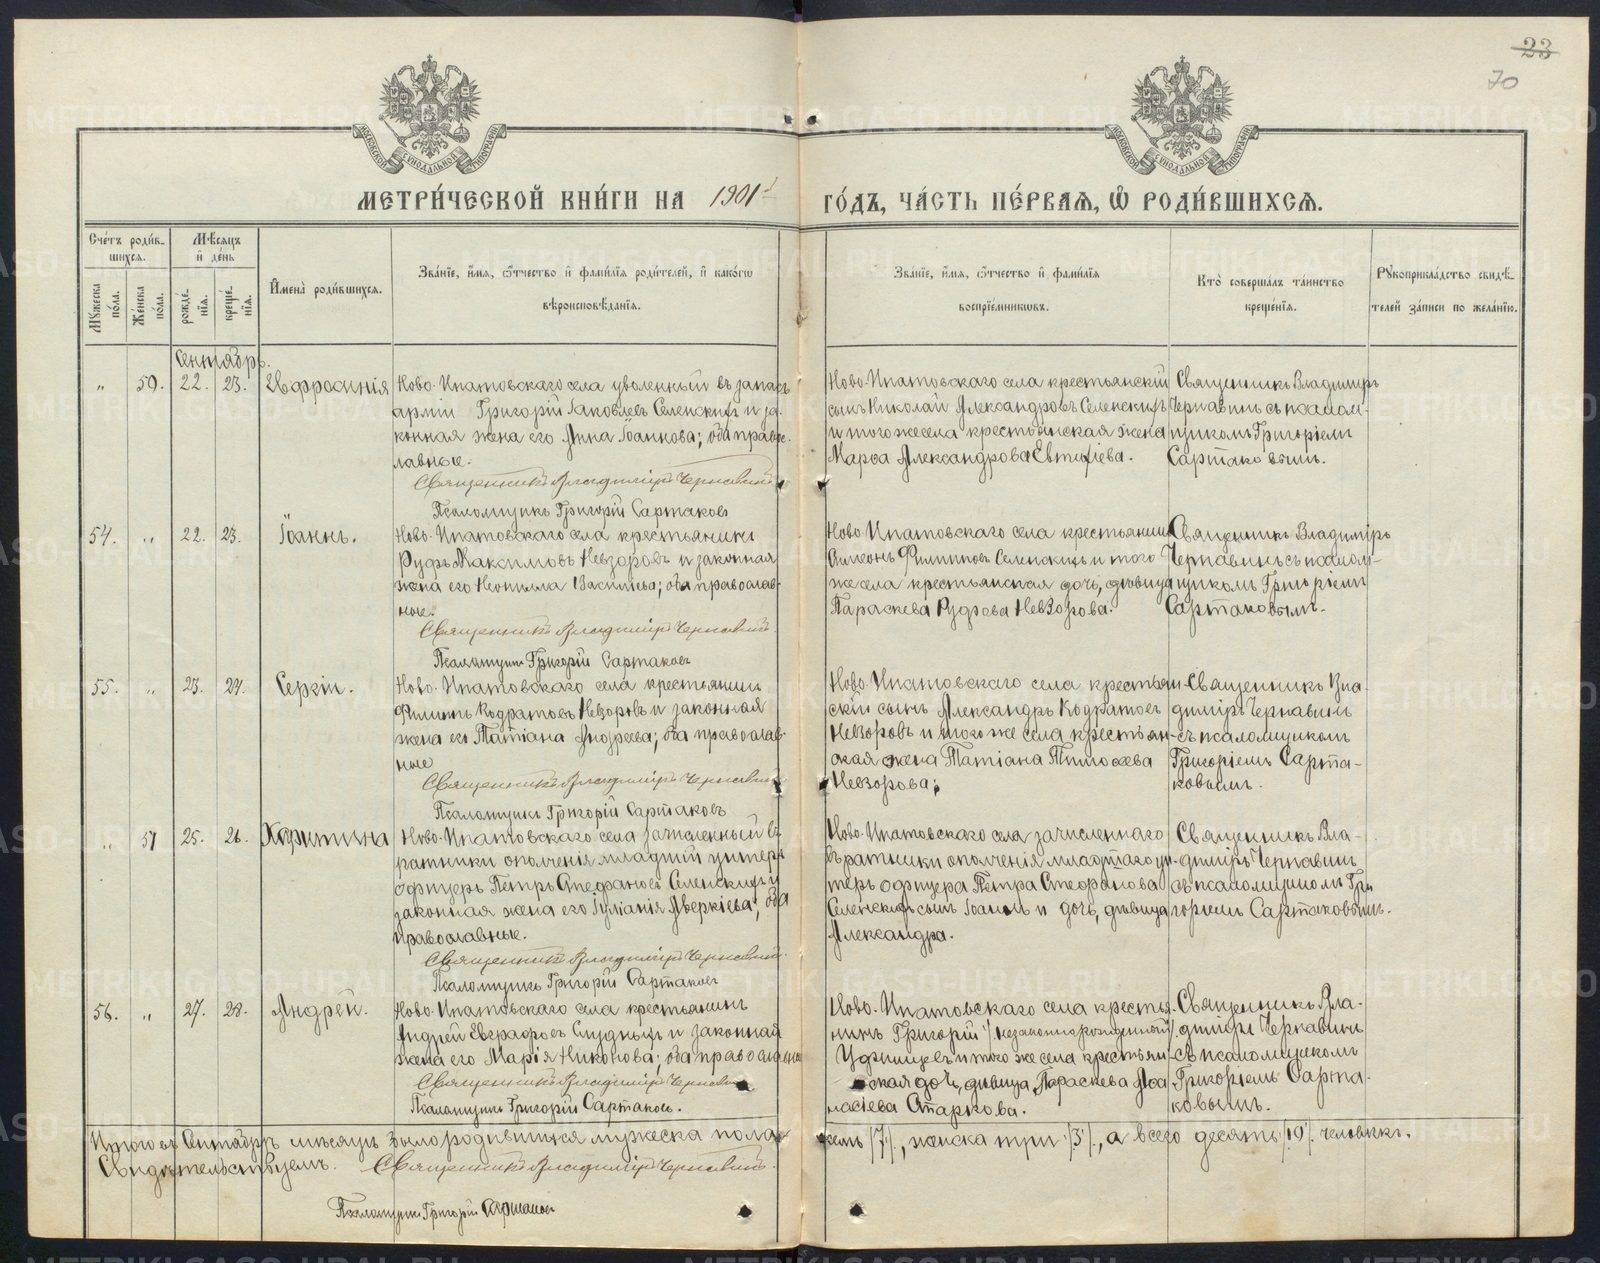 23
70
МОСКОВСКОЙ СѴНОДАЛЬНОЙ ТИПОГРАФІИ
МОСКОВСКОЙ СѴНОДАЛЬНОЙ ТИПОГРАФІИ
МЕТРИ́ЧЕСКОЙ КНИ́ГИ НА 1901 ГО́ДЪ, ЧА́СТЬ ПЕ́РВАѦ, Ѡ҆ РОДИ́ВШИХСѦ.
Сче́тъ роди́в-
шихсѧ.
Мꙋ́жеска по́ла.
Же́нска по́ла.
Мѣ́сѧцъ и҆ де́нь
рожде́-нїѧ.
креще́-нїѧ.
И҆мена̀ роди́вшихсѧ.
Зва́нїе, и҆́мѧ, ѻ҆́тчество и҆ фами́лїѧ роди́телей, и҆ како́гѡ
вѣроисповѣ́данїѧ.
Зва́нїе, и҆́мѧ, ѻ҆́тчество и҆ фами́лїѧ
воспрїе́мникѡвъ.
Кто̀ соверша́лъ та́инство
креще́нїѧ.
Рꙋкоприкла́дство свидѣ́-
телей за́писи по жела́нїю.
Сентябрь.
" 50. 22. 23. Евфросинія
Ново-Ипатовскаго села уволенный въ запасъ
арміи Григорій Іаковлевъ Селенскихъ и за-
конная жена его Анна Іоаннова; оба право-
славные.
Священникъ Владиміръ Чернавинъ
Псаломщикъ Григорій Сартаковъ
Ново-Ипатовскаго села крестьянскій
сынъ Николай Александровъ Селенскихъ
и того же села крестьянская жена
Марѳа Александрова Евтифіева.
Священникъ Владиміръ
Чернавинъ съ псалом-
щикомъ Григоріемъ
Сартаковымъ.
54. " 22. 23. Іоаннъ.
Ново-Ипатовскаго села крестьянинъ
Руфъ Максимовъ Невзоровъ и законная
жена его Неонилла Васильева; оба православ-
ные.
Священникъ Владиміръ Чернавинъ
Псаломщикъ Григорій Сартаковъ
Ново-Ипатовскаго села крестьянинъ
Симеонъ Филипповъ Селенскихъ и того
же села крестьянская дочь, дѣвица
Параскева Руфова Невзорова.
Священникъ Владиміръ
Чернавинъ съ псалом-
щикомъ Григоріемъ
Сартаковымъ.
55. " 23. 24. Сергій.
Ново-Ипатовскаго села крестьянинъ
Филиппъ Кодратовъ Невзоровъ и законная
жена его Татіана Андреева; оба православ-
ные
Священникъ Владиміръ Чернавинъ
Псаломщикъ Григорій Сартаковъ
Ново-Ипатовскаго села крестьян-
скій сынъ Александръ Кодратовъ
Невзоровъ и того же села крестьян-
ская жена Татіана Тимоѳеева
Невзорова;
Священникъ Вла-
диміръ Чернавинъ
съ псаломщикомъ
Григоріемъ Сарта-
ковымъ.
" 51 25. 26. Харитина
Ново-Ипатовскаго села зачисленный въ
ратники ополченія младшій унтеръ
офицеръ Петръ Стефановъ Селенскихъ и
законная жена его Іуліанія Аверкіева; оба
православные.
Священникъ Владиміръ Чернавинъ.
Псаломщикъ Григорій Сартаковъ
Ново-Ипатовскаго села зачисленнаго
въ ратники ополченія младшаго ун-
теръ офицера Петра Стефанова
Селенскихъ сынъ Іоаннъ и дочь, дѣвица
Александра.
Священникъ Вла-
диміръ Чернавинъ
съ псаломщикомъ Гри
горіемъ Сартаковымъ.
56. " 27. 28. Андрей.
Ново-Ипатовскаго села крестьянинъ
Андрей Евграфовъ Слудныхъ и законная
жена его Марія Никонова; оба православные
Священникъ Владиміръ Чернавинъ
Псаломщикъ Григорій Сартаковъ.
Ново-Ипатовскаго села крестья-
нинъ Григорій /незаконнорожденный/
и того же села крестьян-
ская дочь, дѣвица, Параскева Аѳа
насіева Старкова.
Священникъ Вла-
диміръ Чернавинъ
съ псаломщикомъ
Григоріемъ Сарта-
ковымъ.
Итого въ Сентябрѣ мѣсяцѣ было родившихся мужеска пола семь /7/., женска три /3/., а всего десять /10/. человѣкъ.
Свидѣтельствуемъ. Священникъ Владиміръ Чернавинъ.
Псаломщикъ Григорій Сартаковъ
METRIKI.GASO-URAL.RU